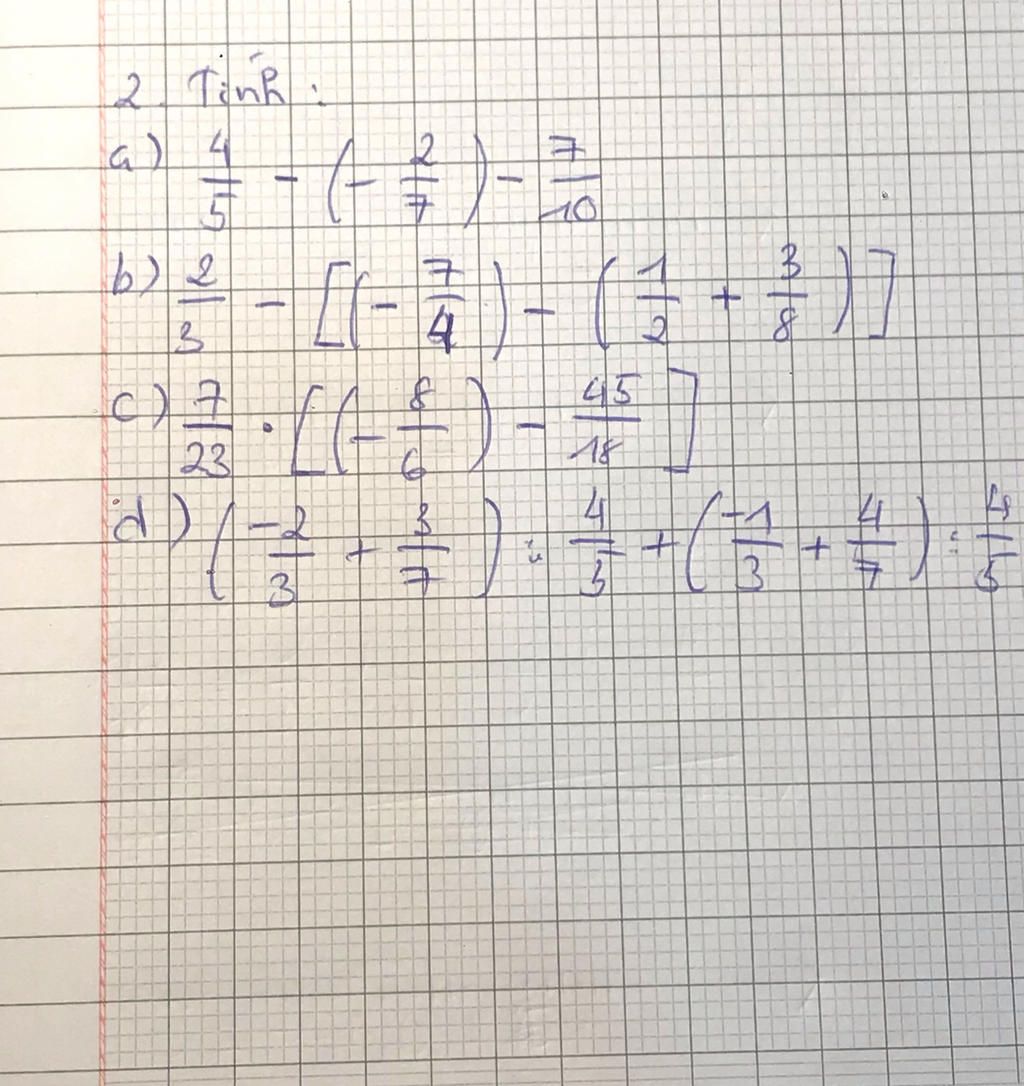 2. Tính :
a) 4/5 - (- 2/7) - 7/10
b) 2/3 - [(- 7/4) - (1/2 + 3/8)]
c) 7/23 . [(- 8/6) - 45/18]
d) (-2/3 + 3/7) : 4/5 + (-1/3 + 4/7) : 4/5